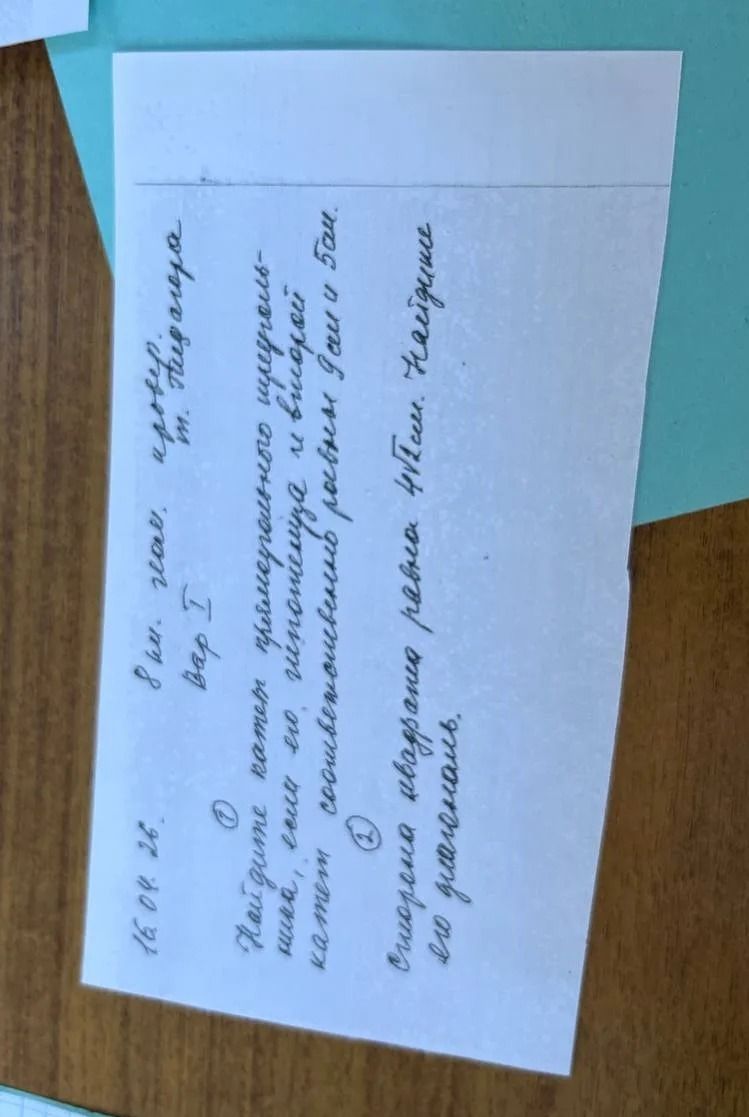 16.04.26. 8 кл. гео. провер.
Вар I т. Пифагора
①
Найдите катет прямоугольного треуголь-
ника, если его гипотенуза и второй
катет соответственно равны 9 см и 5 см.
②
Сторона квадрата равна 4√2 см. Найдите
его диагональ.